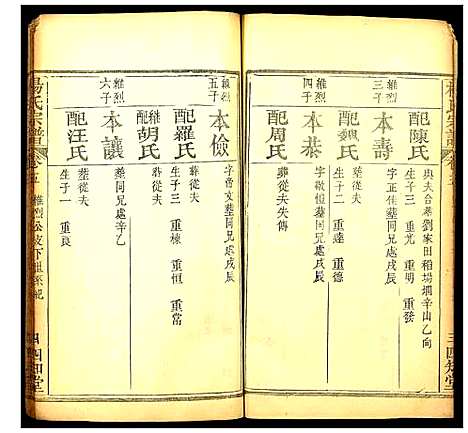 楊氏宗譜
卷五
三
四知堂
配陳氏
與夫合墓劉家田稻場堈辛山乙向
生子三 重光 重明 重發
維烈三子
本壽
字 墓同兄處戌辰
配魏氏
生子二 重達 重德
葬從夫
維烈四子
本恭
字敬恆墓同兄處戌辰
配周氏
葬從夫失傳
維烈五子
本儉
字會文墓同兄處戌辰
配羅氏
生子三 重棟 重恒 重常
葬從夫
繼配胡氏
葬從夫
維烈六子
本讓
墓同兄處辛乙
配汪氏
葬從夫
生子一 重良
楊氏宗譜
卷五
維烈公支下祖系紀
四
四知堂